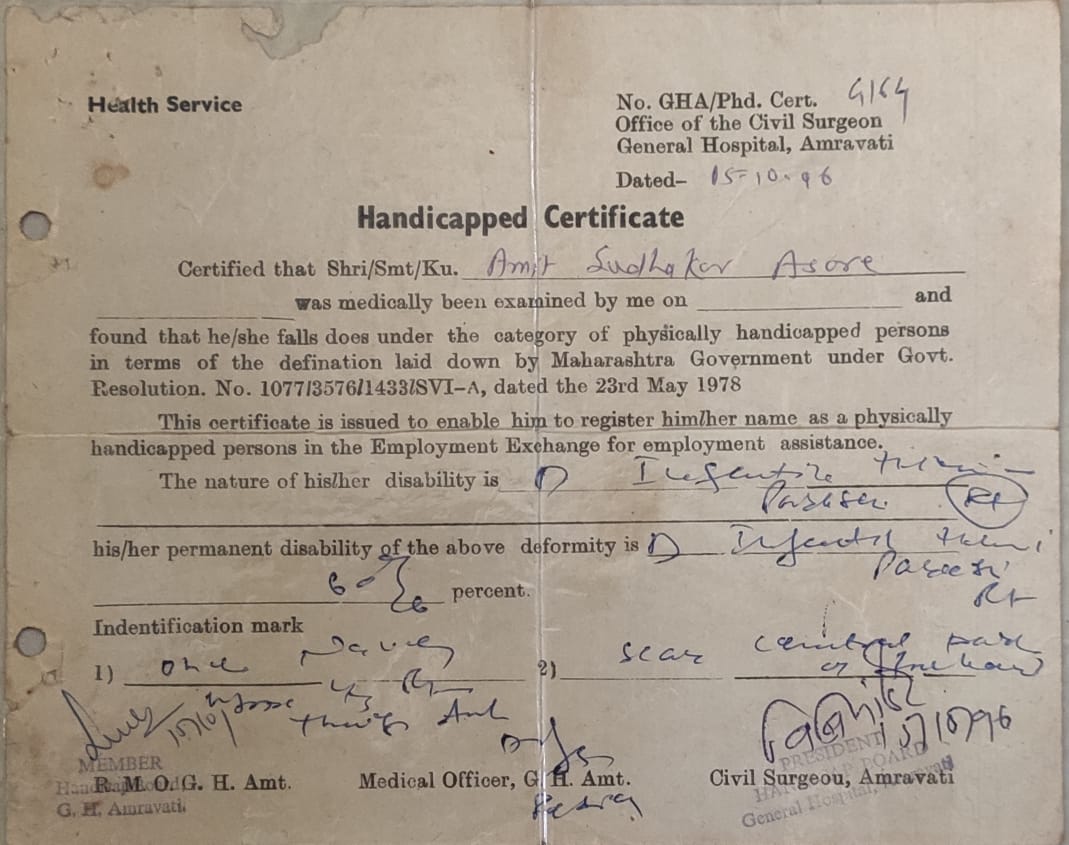 Health Service
No. GHA/Phd. Cert. 4164
Office of the Civil Surgeon
General Hospital, Amravati
Dated– 15-10-96
Handicapped Certificate
Certified that Shri/Smt/Ku. Amit Sudhakar Asore
was medically been examined by me on and
found that he/she falls does under the category of physically handicapped persons
in terms of the defination laid down by Maharashtra Government under Govt.
Resolution. No. 1077/3576/1433/SVI–A, dated the 23rd May 1978
This certificate is issued to enable him to register him/her name as a physically
handicapped persons in the Employment Exchange for employment assistance.
The nature of his/her disability is 1) Infantile
Rt
his/her permanent disability of the above deformity is 1)
Rt
60% percent.
Indentification mark
1) one 2) scar central part
of forehead
15/10/96
MEMBER
PRESIDENT
R. M. O. G. H. Amt. Medical Officer, G H. Amt. Civil Surgeou, Amravati
G. H. Amravati
General Hospital, Amravati